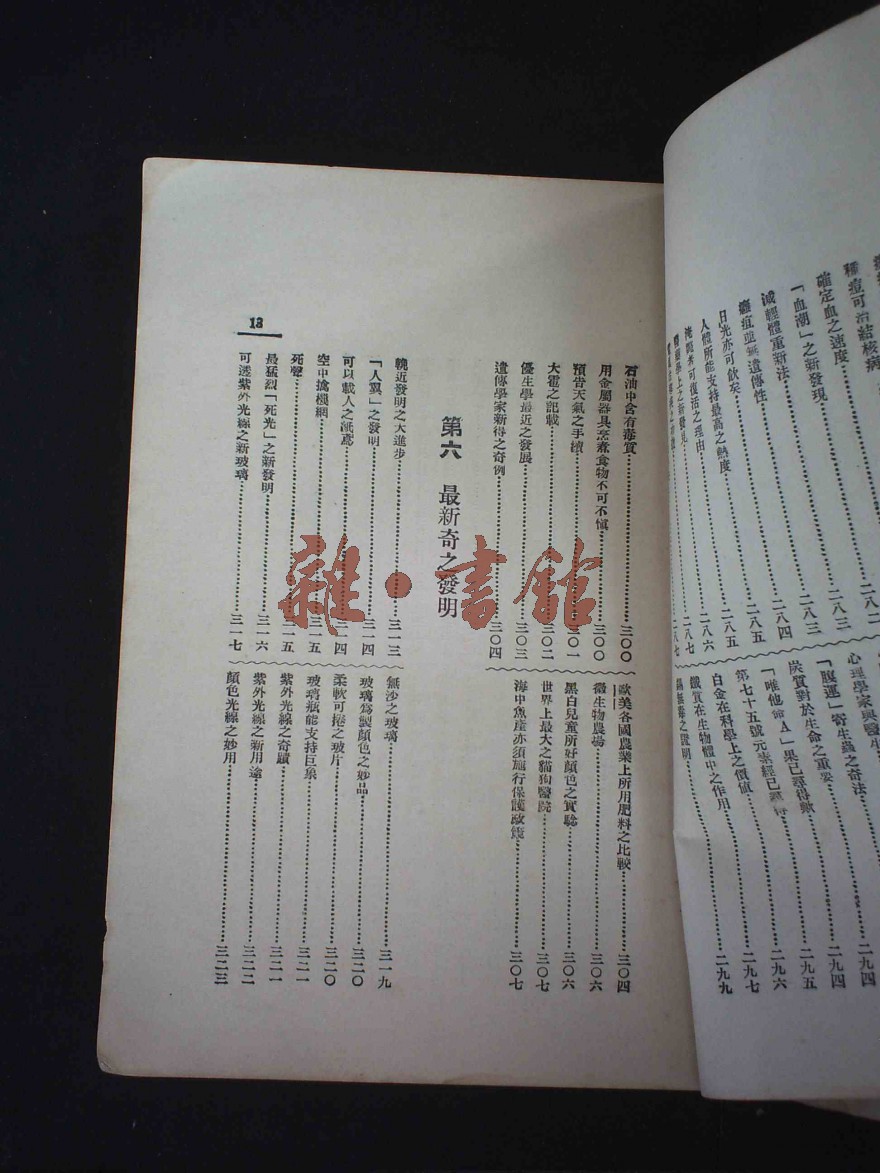 種痘可治結核病
確定血之速度……二八二
「血潮」之新發現……二八三
減輕體重新法……二八三
癰疽並無遺傳性……二八四
日光亦可飲矣……二八五
人體所能支持最高之熱度……二八六
心理學家與醫生
「腹運」寄生蟲之奇法……二九四
炭質對於生命之重要……二九五
「唯他命A」果已尋得歟……二九六
第七十五號元素經已尋得……二九七
白金在科學上之價值
鐵質在生物體中之作用……二九九
石油中含有毒質……三〇〇
用金屬器具烹煮食物不可不慎……三〇〇
預告天氣之手續……三〇一
大雹之記載……三〇二
優生學最近之發展……三〇三
遺傳學家新得之奇例……三〇四
歐美各國農業上所用肥料之比較……三〇四
微生物農場……三〇六
黑白兒童所好顏色之實驗……三〇六
世界上最大之貓狗醫院……三〇七
海中魚產亦須施行保護政策……三〇七
第六 最新奇之發明
輓近發明之大進步……三一三
「人翼」之發明……三一四
可以載人之紙鳶……三一四
空中擒機網……三一五
死聲……三一五
最猛烈「死光」之新發明……三一六
可透紫外光線之新玻璃……三一七
無沙之玻璃……三一九
玻璃為製顏色之妙品……三二〇
柔軟可捲之玻片……三二〇
玻璃瓶能支持巨象……三二一
紫外光線之奇蹟……三二一
紫外光線之新用途……三二二
顏色光線之妙用……三二三
13
雜·書館